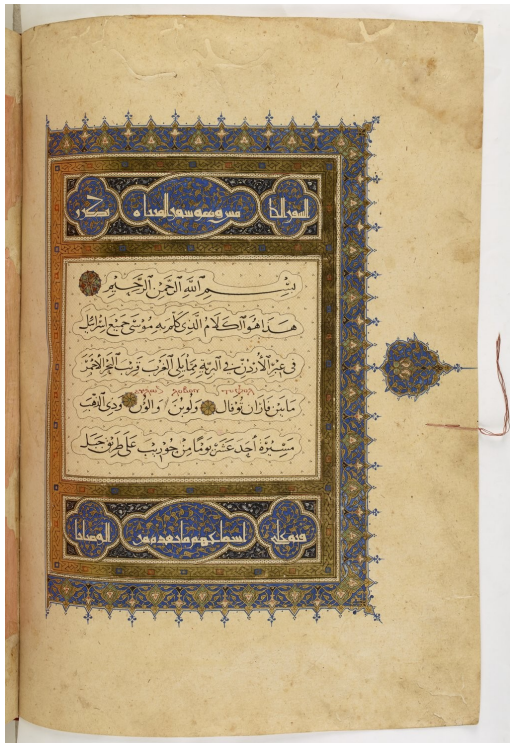 السفر الخا مس وهو سفر المثناه يكرر
بِسْمِ اللهِ الرَّحْمٰنِ الرَّحِيْمِ
هذا هو الكلام الذي كلم به موسى جميع اسرائل
في عبر الأردن في البرية مما يلي الغرب قريب البحر الأحمر
ما بين فاران توفال ولوبن والون وذي الذهب
مسيرة احد عشر يوما من حوريب على طريق جبل
فيه على اسماعهم ما تقدم من الوصايا